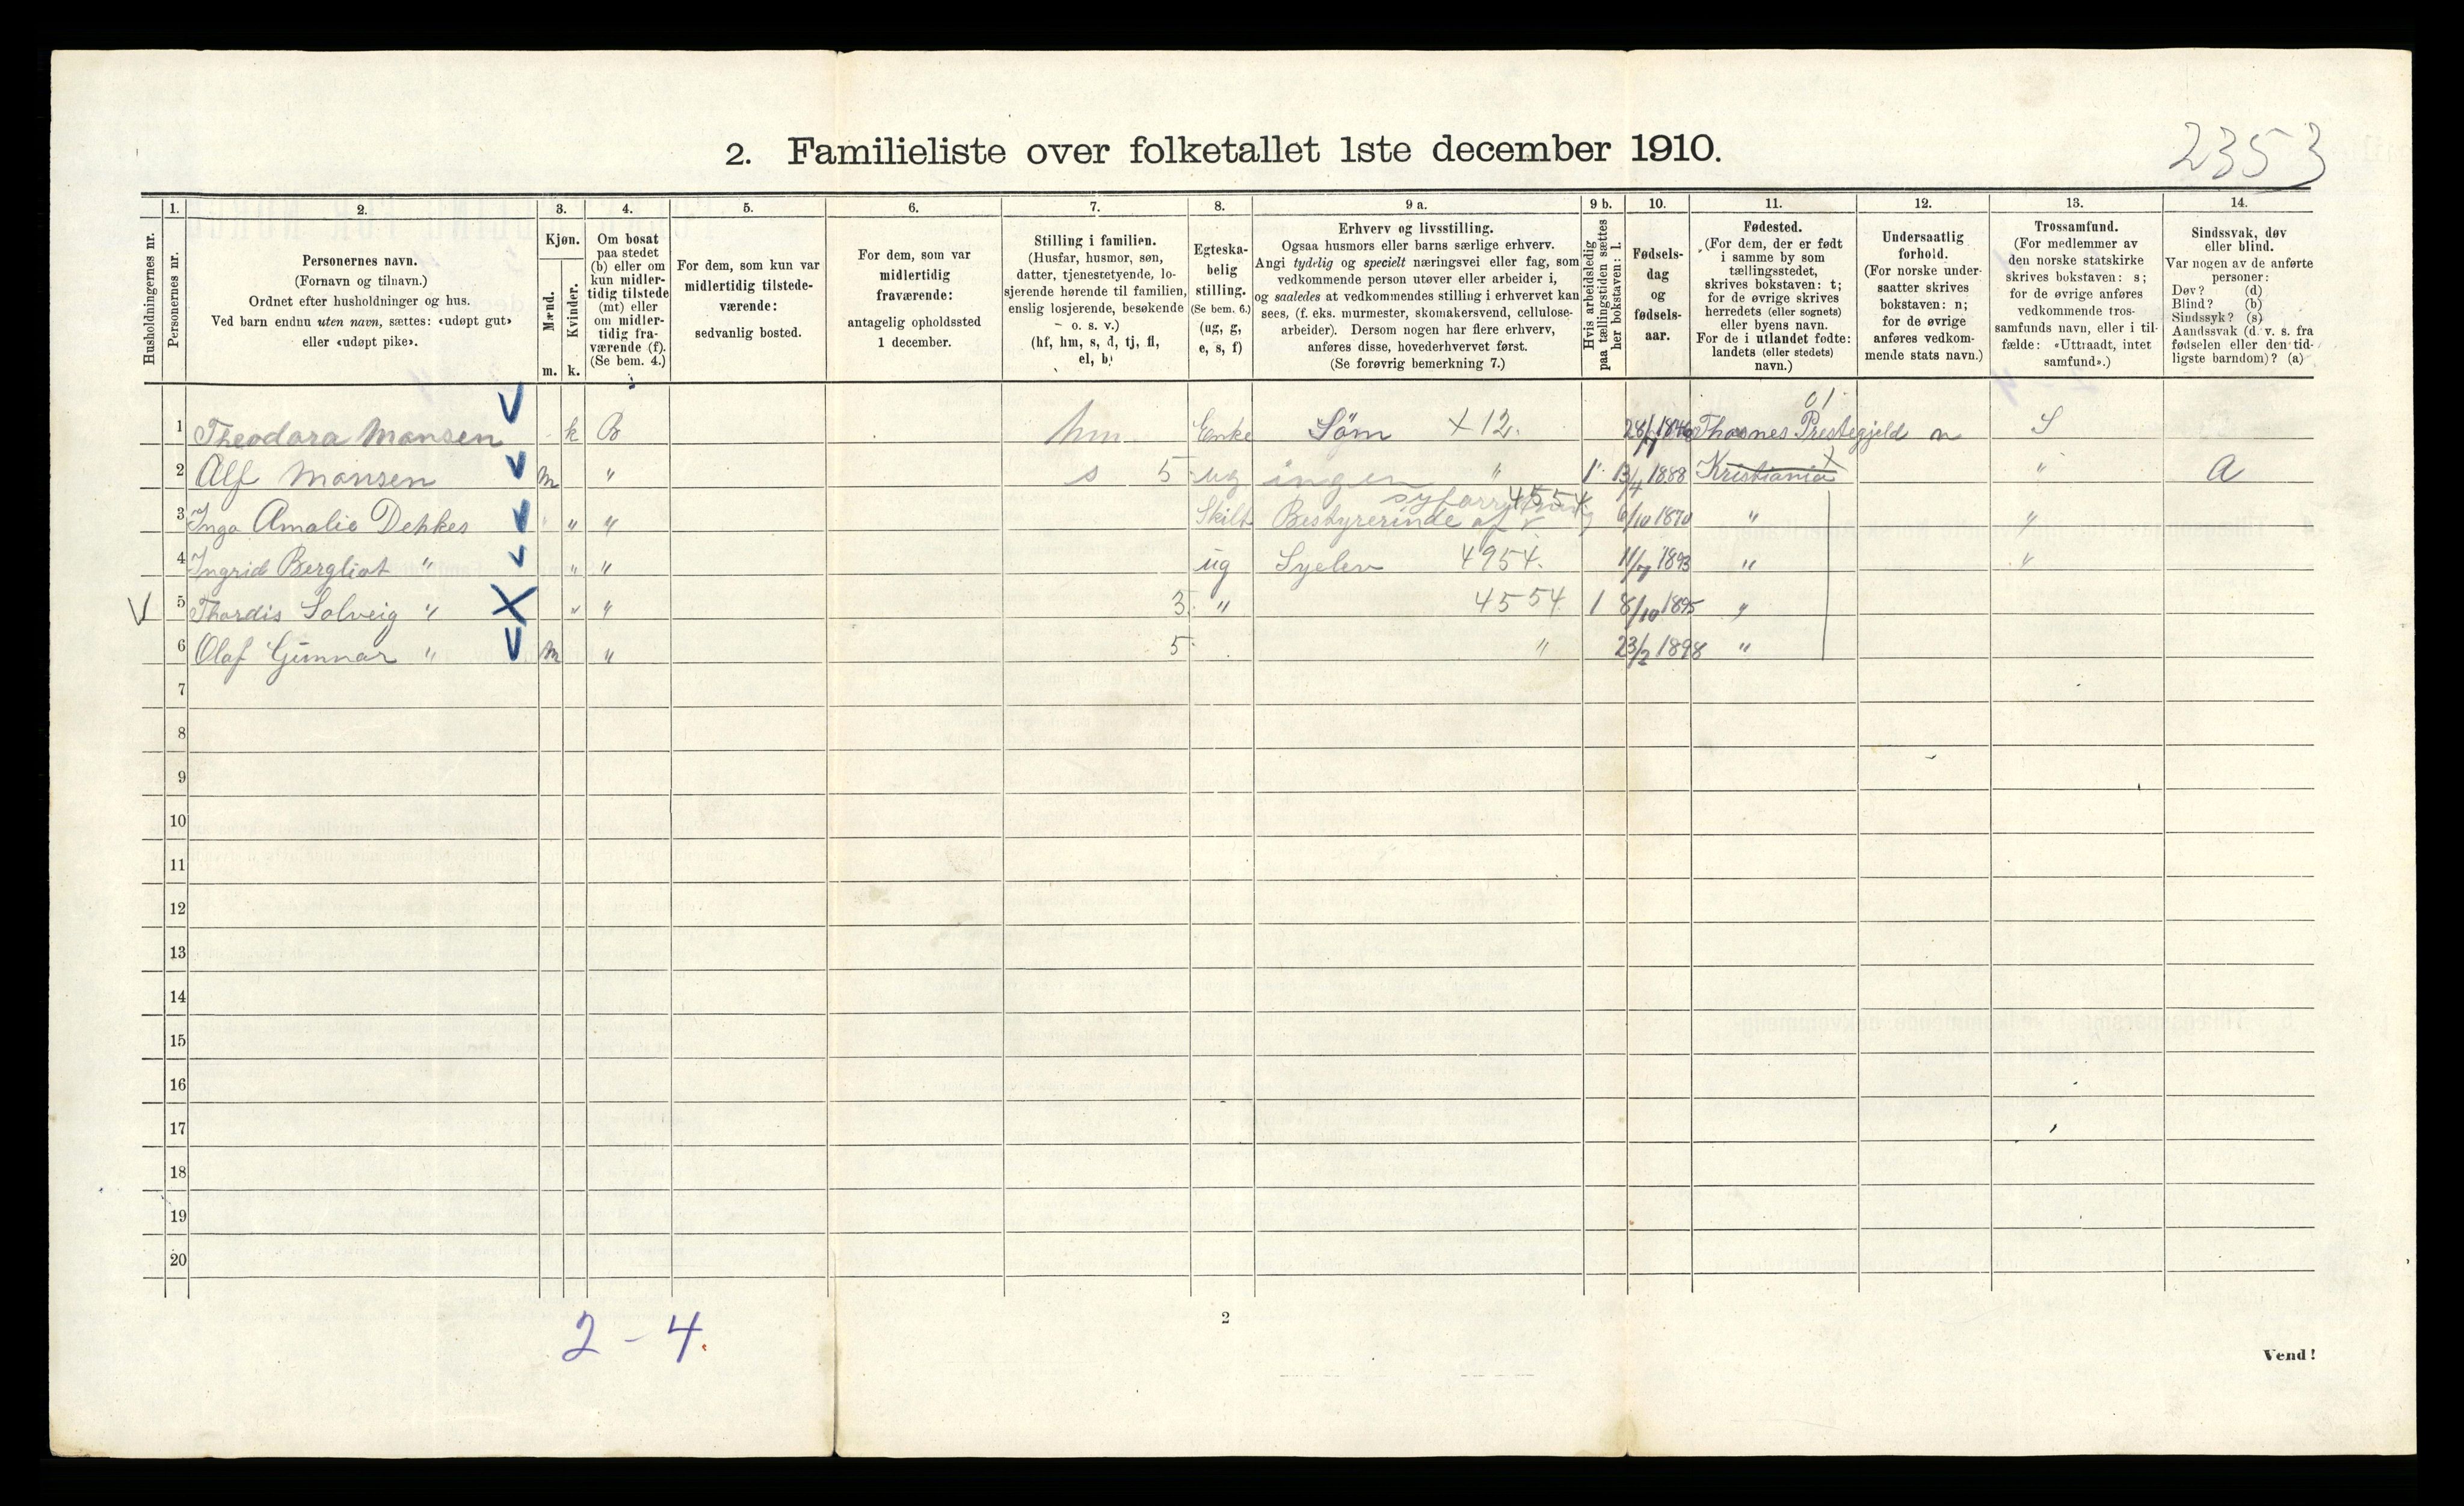 2353
2. Familieliste over folketallet 1ste december 1910.
Husholdningernes nr.
1.
Personernes nr.
2.
Personernes navn.
(Fornavn og tilnavn.)
Ordnet efter husholdninger og hus.
Ved barn endnu uten navn, sættes: «udøpt gut»
eller «udøpt pike».
3.
Kjøn.
Mænd.
Kvinder.
m. k.
4.
Om bosat
paa stedet
(b) eller om
kun midler-
tidig tilstede
(mt) eller
om midler-
tidig fra-
værende (f).
(Se bem. 4.)
5.
For dem, som kun var
midlertidig tilstede-
værende:
sedvanlig bosted.
6.
For dem, som var
midlertidig
fraværende:
antagelig opholdssted
1 december.
7.
Stilling i familien.
(Husfar, husmor, søn,
datter, tjenestetyende, lo-
sjerende hørende til familien,
enslig losjerende, besøkende
o. s. v.)
(hf, hm, s, d, tj, fl,
el, b)
8.
Egteska-
belig
stilling.
(Se bem. 6.)
(ug, g,
e, s, f)
9 a.
Erhverv og livsstilling.
Ogsaa husmors eller barns særlige erhverv.
Angi tydelig og specielt næringsvei eller fag, som
vedkommende person utøver eller arbeider i,
og saaledes at vedkommendes stilling i erhvervet kan
sees, (f. eks. murmester, skomakersvend, cellulose-
arbeider). Dersom nogen har flere erhverv,
anføres disse, hovederhvervet først.
(Se forøvrig bemerkning 7.)
9 b.
Hvis arbeidsledig
paa tællingstiden sættes
her bokstaven: l.
10.
Fødsels-
dag
og
fødsels-
aar.
11.
Fødested.
(For dem, der er født
i samme by som
tællingsstedet,
skrives bokstaven: t;
for de øvrige skrives
herredets (eller sognets)
eller byens navn.
For de i utlandet fødte:
landets (eller stedets)
navn.)
12.
Undersaatlig
forhold.
(For norske under-
saatter skrives
bokstaven: n;
for de øvrige
anføres vedkom-
mende stats navn.)
13.
Trossamfund.
(For medlemmer av
den norske statskirke
skrives bokstaven: s;
for de øvrige anføres
vedkommende tros-
samfunds navn, eller i til-
fælde: «Uttraadt, intet
samfund».)
14.
Sindssvak, døv
eller blind.
Var nogen av de anførte
personer:
Døv? (d)
Blind? (b)
Sindssyk? (s)
Aandssvak (d. v. s. fra
fødselen eller den tid-
ligste barndom)? (a)
01
1 Theodora Monsen k B hm Enke Söm X 12. Prestegjeld n S
2 Alf Monsen m " s 5 ug ingen " 1 13/4 1888 Kristiania " A
4554
3 Inga Amalie Dehkes " " Skilt Bestyrerinde af 6/10 1870 " "
4 Ingrid Bergliot " " " ug Syelev 4954. 11/7 1893 " "
5 Thordis Solveig " " " 3. " 4554 1 8/10 1895 "
6 Olaf Gunnar " m " 5 " 23/2 1898 "
7
8
9
10
11
12
13
14
15
16
17
18
19
20
2 - 4.
2
Vend!